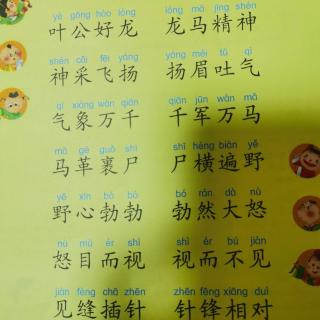 yè gōng hào lóng lóng mǎ jīng shén
叶公好龙 龙马精神
shén cǎi fēi yáng yáng méi tǔ qì
神采飞扬 扬眉吐气
qì xiàng wàn qiān qiān jūn wàn mǎ
气象万千 千军万马
mǎ gé guǒ shī shī héng biàn yě
马革裹尸 尸横遍野
yě xīn bó bó bó rán dà nù
野心勃勃 勃然大怒
nù mù ér shì shì ér bú jiàn
怒目而视 视而不见
jiàn fèng chā zhēn zhēn fēng xiāng duì
见缝插针 针锋相对